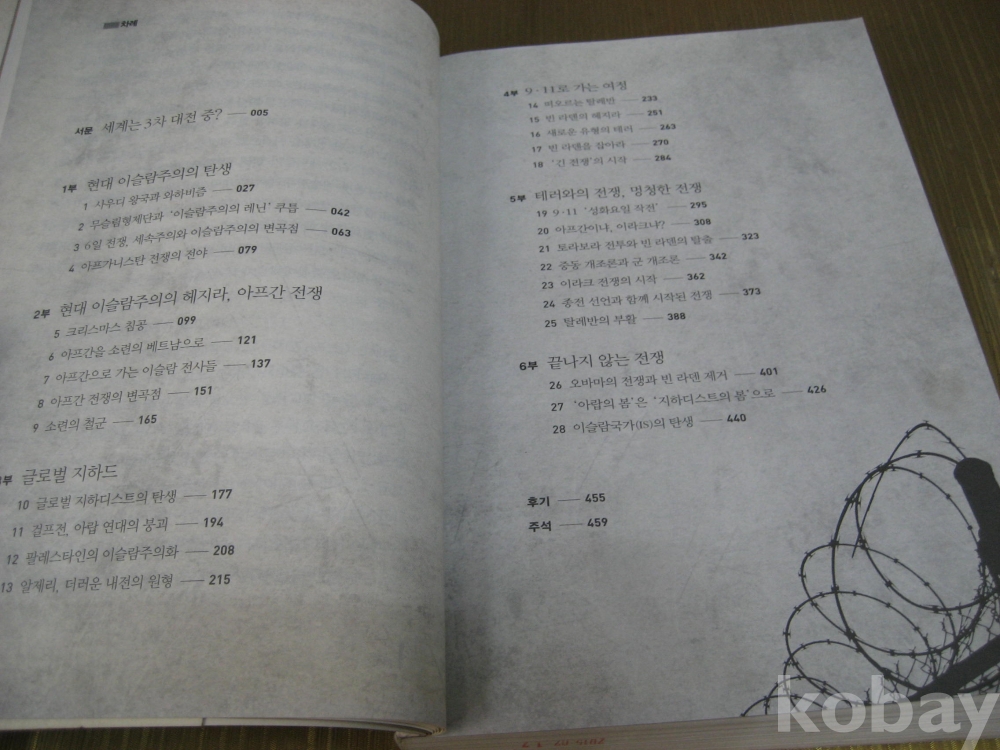 차례
서문 세계는 3차 대전 중? — 005
1부 현대 이슬람주의의 탄생
1 사우디 왕국과 와하비즘 — 027
2 무슬림형제단과 '이슬람주의의 레닌' 쿠틉 — 042
3 6일 전쟁, 세속주의와 이슬람주의의 변곡점 — 063
4 아프가니스탄 전쟁의 전야 — 079
2부 현대 이슬람주의의 헤지라, 아프간 전쟁
5 크리스마스 침공 — 099
6 아프간을 소련의 베트남으로 — 121
7 아프간으로 가는 이슬람 전사들 — 137
8 아프간 전쟁의 변곡점 — 151
9 소련의 철군 — 165
부 글로벌 지하드
10 글로벌 지하디스트의 탄생 — 177
11 걸프전, 아랍 연대의 붕괴 — 194
12 팔레스타인의 이슬람주의화 — 208
13 알제리, 더러운 내전의 원형 — 215
4부 9·11로 가는 여정
14 떠오르는 탈레반 — 233
15 빈 라덴의 헤지라 — 251
16 새로운 유형의 테러 — 263
17 빈 라덴을 잡아라 — 270
18 '긴 전쟁'의 시작 — 284
5부 테러와의 전쟁, 멍청한 전쟁
19 9·11 '성화요일 작전' — 295
20 아프간이냐, 이라크냐? — 308
21 토라보라 전투와 빈 라덴의 탈출 — 323
22 중동 개조론과 군 개조론 — 342
23 이라크 전쟁의 시작 — 362
24 종전 선언과 함께 시작된 전쟁 — 373
25 탈레반의 부활 — 388
6부 끝나지 않는 전쟁
26 오바마의 전쟁과 빈 라덴 제거 — 401
27 '아랍의 봄'은 '지하디스트의 봄'으로 — 426
28 이슬람국가(IS)의 탄생 — 440
후기 — 455
주석 — 459
kobay